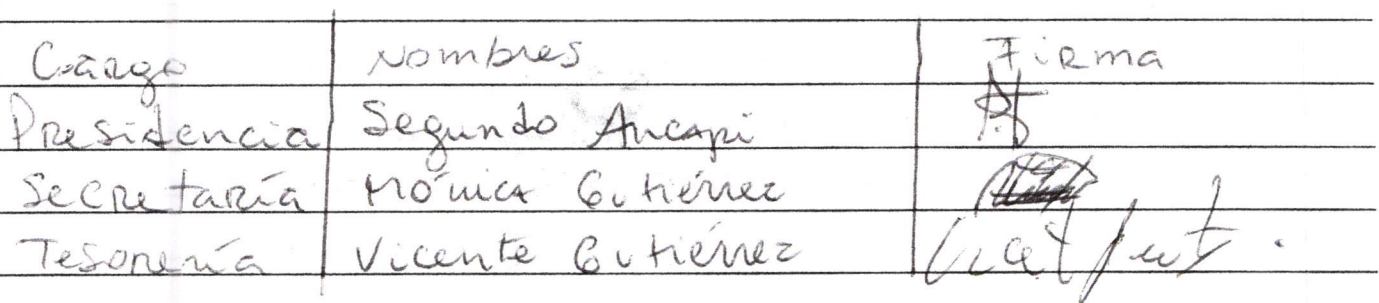 Cargo Nombres Firma
Presidencia Segundo Ancapi
Secretaría Mónica Gutiérrez
Tesorería Vicente Gutiérrez